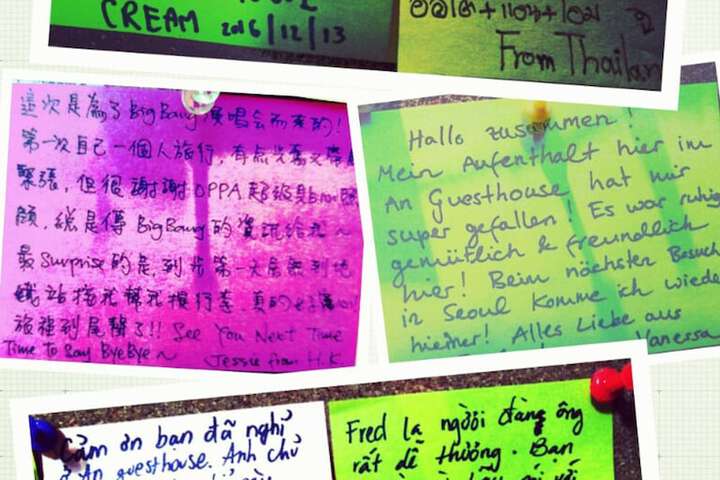 CREAM 2016/12/13
From Thailan
這次是為了BigBang演唱会而來的!
第一次自己一個人旅行, 有点兴奋又帶
緊張, 但很謝謝OPPA 超級貼心照
顧, 總是傳BigBang的資訊給我~
最Surprise的是, 到步第一天居然到地
鐵站接我幫我搬行李, 真的
旅程到尾聲了!! See You Next Time
Time To Say ByeBye~ Jessie from H.K
Hallo zusammen!
Mein Aufenthalt hier im
An Guesthouse hat mir
super gefallen! Es war ruhig
gemütlich & freundlich
hier! Beim nächsten Besuch
in Seoul komme ich wieder
hierher! Alles Liebe aus
Vanessa
Cảm ơn bạn đã nghỉ
ở An guesthouse. Anh chủ
Fred là người đàng ông
rất dễ thương. Bạn